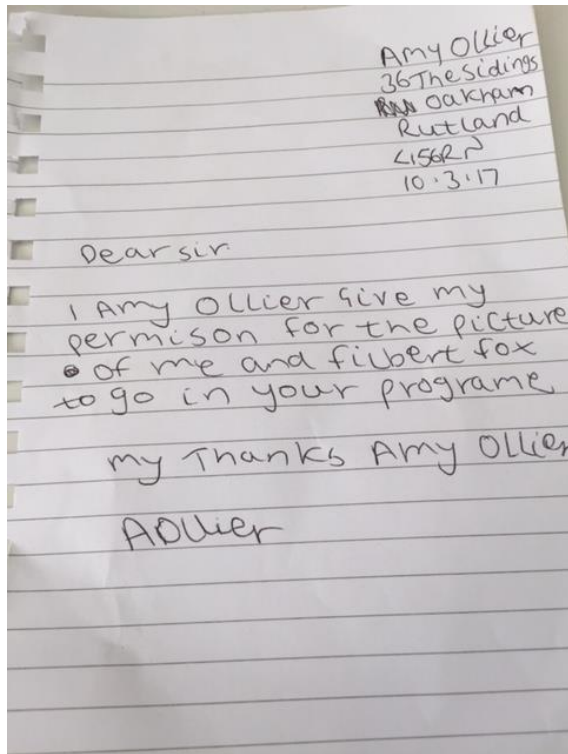 Amy Ollier
36 The Sidings
Oakham
Rutland
10.3.17
Dear sir
I Amy Ollier Give my
permison for the picture
of me and filbert fox
to go in your programe
my Thanks Amy Ollier
AOllier